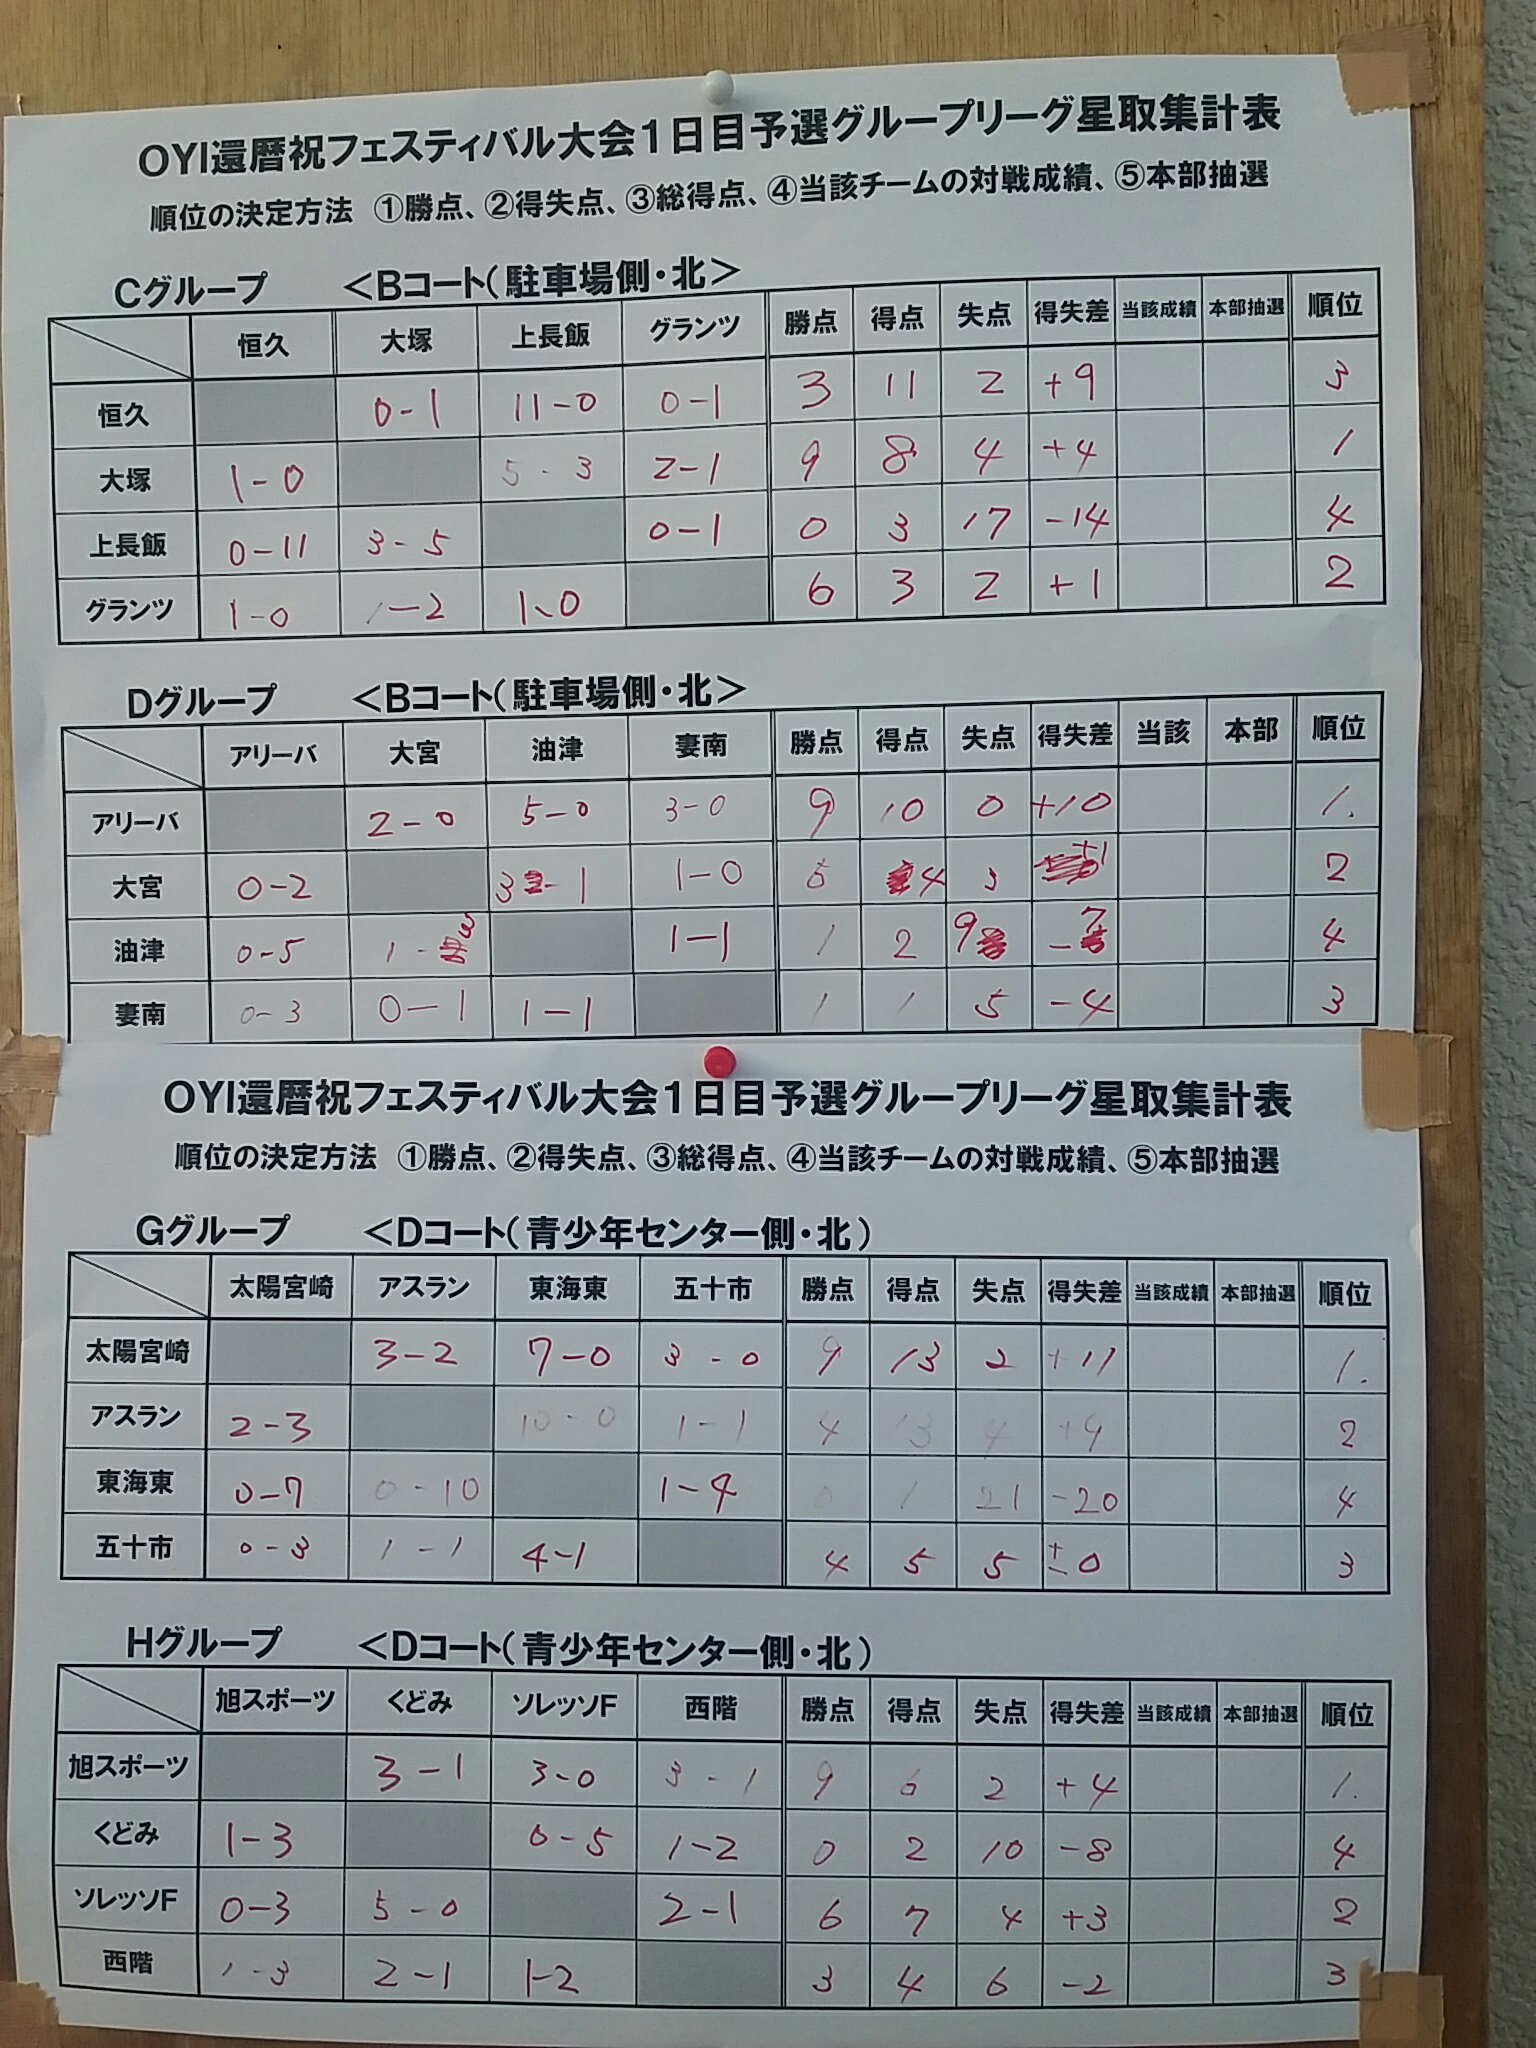 OYI還暦祝フェスティバル大会1日目予選グループリーグ星取集計表
順位の決定方法 ①勝点、②得失点、③総得点、④当該チームの対戦成績、⑤本部抽選
Cグループ <Bコート(駐車場側・北>
恒久 大塚 上長飯 グランツ 勝点 得点 失点 得失差 当該成績 本部抽選 順位
恒久 0-1 11-0 0-1 3 11 2 +9 3
大塚 1-0 5-3 2-1 9 8 4 +4 1
上長飯 0-11 3-5 0-1 0 3 17 -14 4
グランツ 1-0 1-2 1-0 6 3 2 +1 2
Dグループ <Bコート(駐車場側・北>
アリーバ 大宮 油津 妻南 勝点 得点 失点 得失差 当該 本部 順位
アリーバ 2-0 5-0 3-0 9 10 0 +10 1.
大宮 0-2 3-1 1-0 4 3 +1 2
油津 0-5 1-3 1-1 1 2 9 -7 4
妻南 0-3 0-1 1-1 1 1 5 -4 3
OYI還暦祝フェスティバル大会1日目予選グループリーグ星取集計表
順位の決定方法 ①勝点、②得失点、③総得点、④当該チームの対戦成績、⑤本部抽選
Gグループ <Dコート(青少年センター側・北)
太陽宮崎 アスラン 東海東 五十市 勝点 得点 失点 得失差 当該成績 本部抽選 順位
太陽宮崎 3-2 7-0 3-0 9 13 2 +11 1.
アスラン 2-3 10-0 1-1 4 13 4 +9 2
東海東 0-7 0-10 1-4 0 1 21 -20 4
五十市 0-3 1-1 4-1 4 5 5 ±0 3
Hグループ <Dコート(青少年センター側・北)
旭スポーツ くどみ ソレッソF 西階 勝点 得点 失点 得失差 当該成績 本部抽選 順位
旭スポーツ 3-1 3-0 3-1 9 6 2 +4 1.
くどみ 1-3 0-5 1-2 0 2 10 -8 4
ソレッソF 0-3 5-0 2-1 6 7 4 +3 2
西階 1-3 2-1 1-2 3 4 6 -2 3